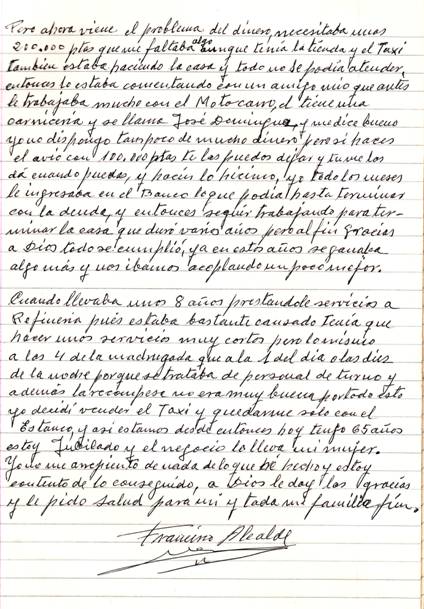 Pero ahora viene el problema del dinero, necesitaba unas
200.000 ptas que me faltaba algo aunque tenía la tienda y el Taxi
tambien estaba haciendo la casa y todo no se podia atender,
entonces lo estaba comentando con un amigo mio que antes
le trabajaba mucho con el Motocarro, el tiene una
carniceria y se llama José Dominguez, y me dice bueno
yo no dispongo tampoco de mucho dinero pero si haces
el avio con 100.000 ptas te las puedos dejar y tu me los
dá cuando puedas, y hacin lo hicimo, yo todo los meses
le ingresaba en el Banco lo que podia hasta terminar
con la deuda, y entonces seguir trabajando para ter-
minar la casa que duró varios años pero al fin gracias
a Dios todo se cumplió, ya en estos años se ganaba
algo más y nos ibamos acoplando un poco mejor.
Cuando llevaba unos 8 años prestandole servicios a
Refineria pués estaba bastante cansado tenía que
hacer unos servicios muy cortos pero lo mismo
a las 4 de la madrugada que a la 1 del dia o las diez
de la noche porque se trataba de personal de turno y
además la recompese no era muy buena, por todo esto
yo decidí vender el Taxi y quedarme solo con el
Estanco, y asi estamos desde entonces hoy tengo 65 años
estoy Jubilado y el negocio lo lleva mi mujer.
Yo no me arrepiento de nada de lo que hé hecho y estoy
contento de lo conseguido, a Dios le doy las gracias
y le pido Salud para mi y toda mi familia fin.
Francisco Alcalde